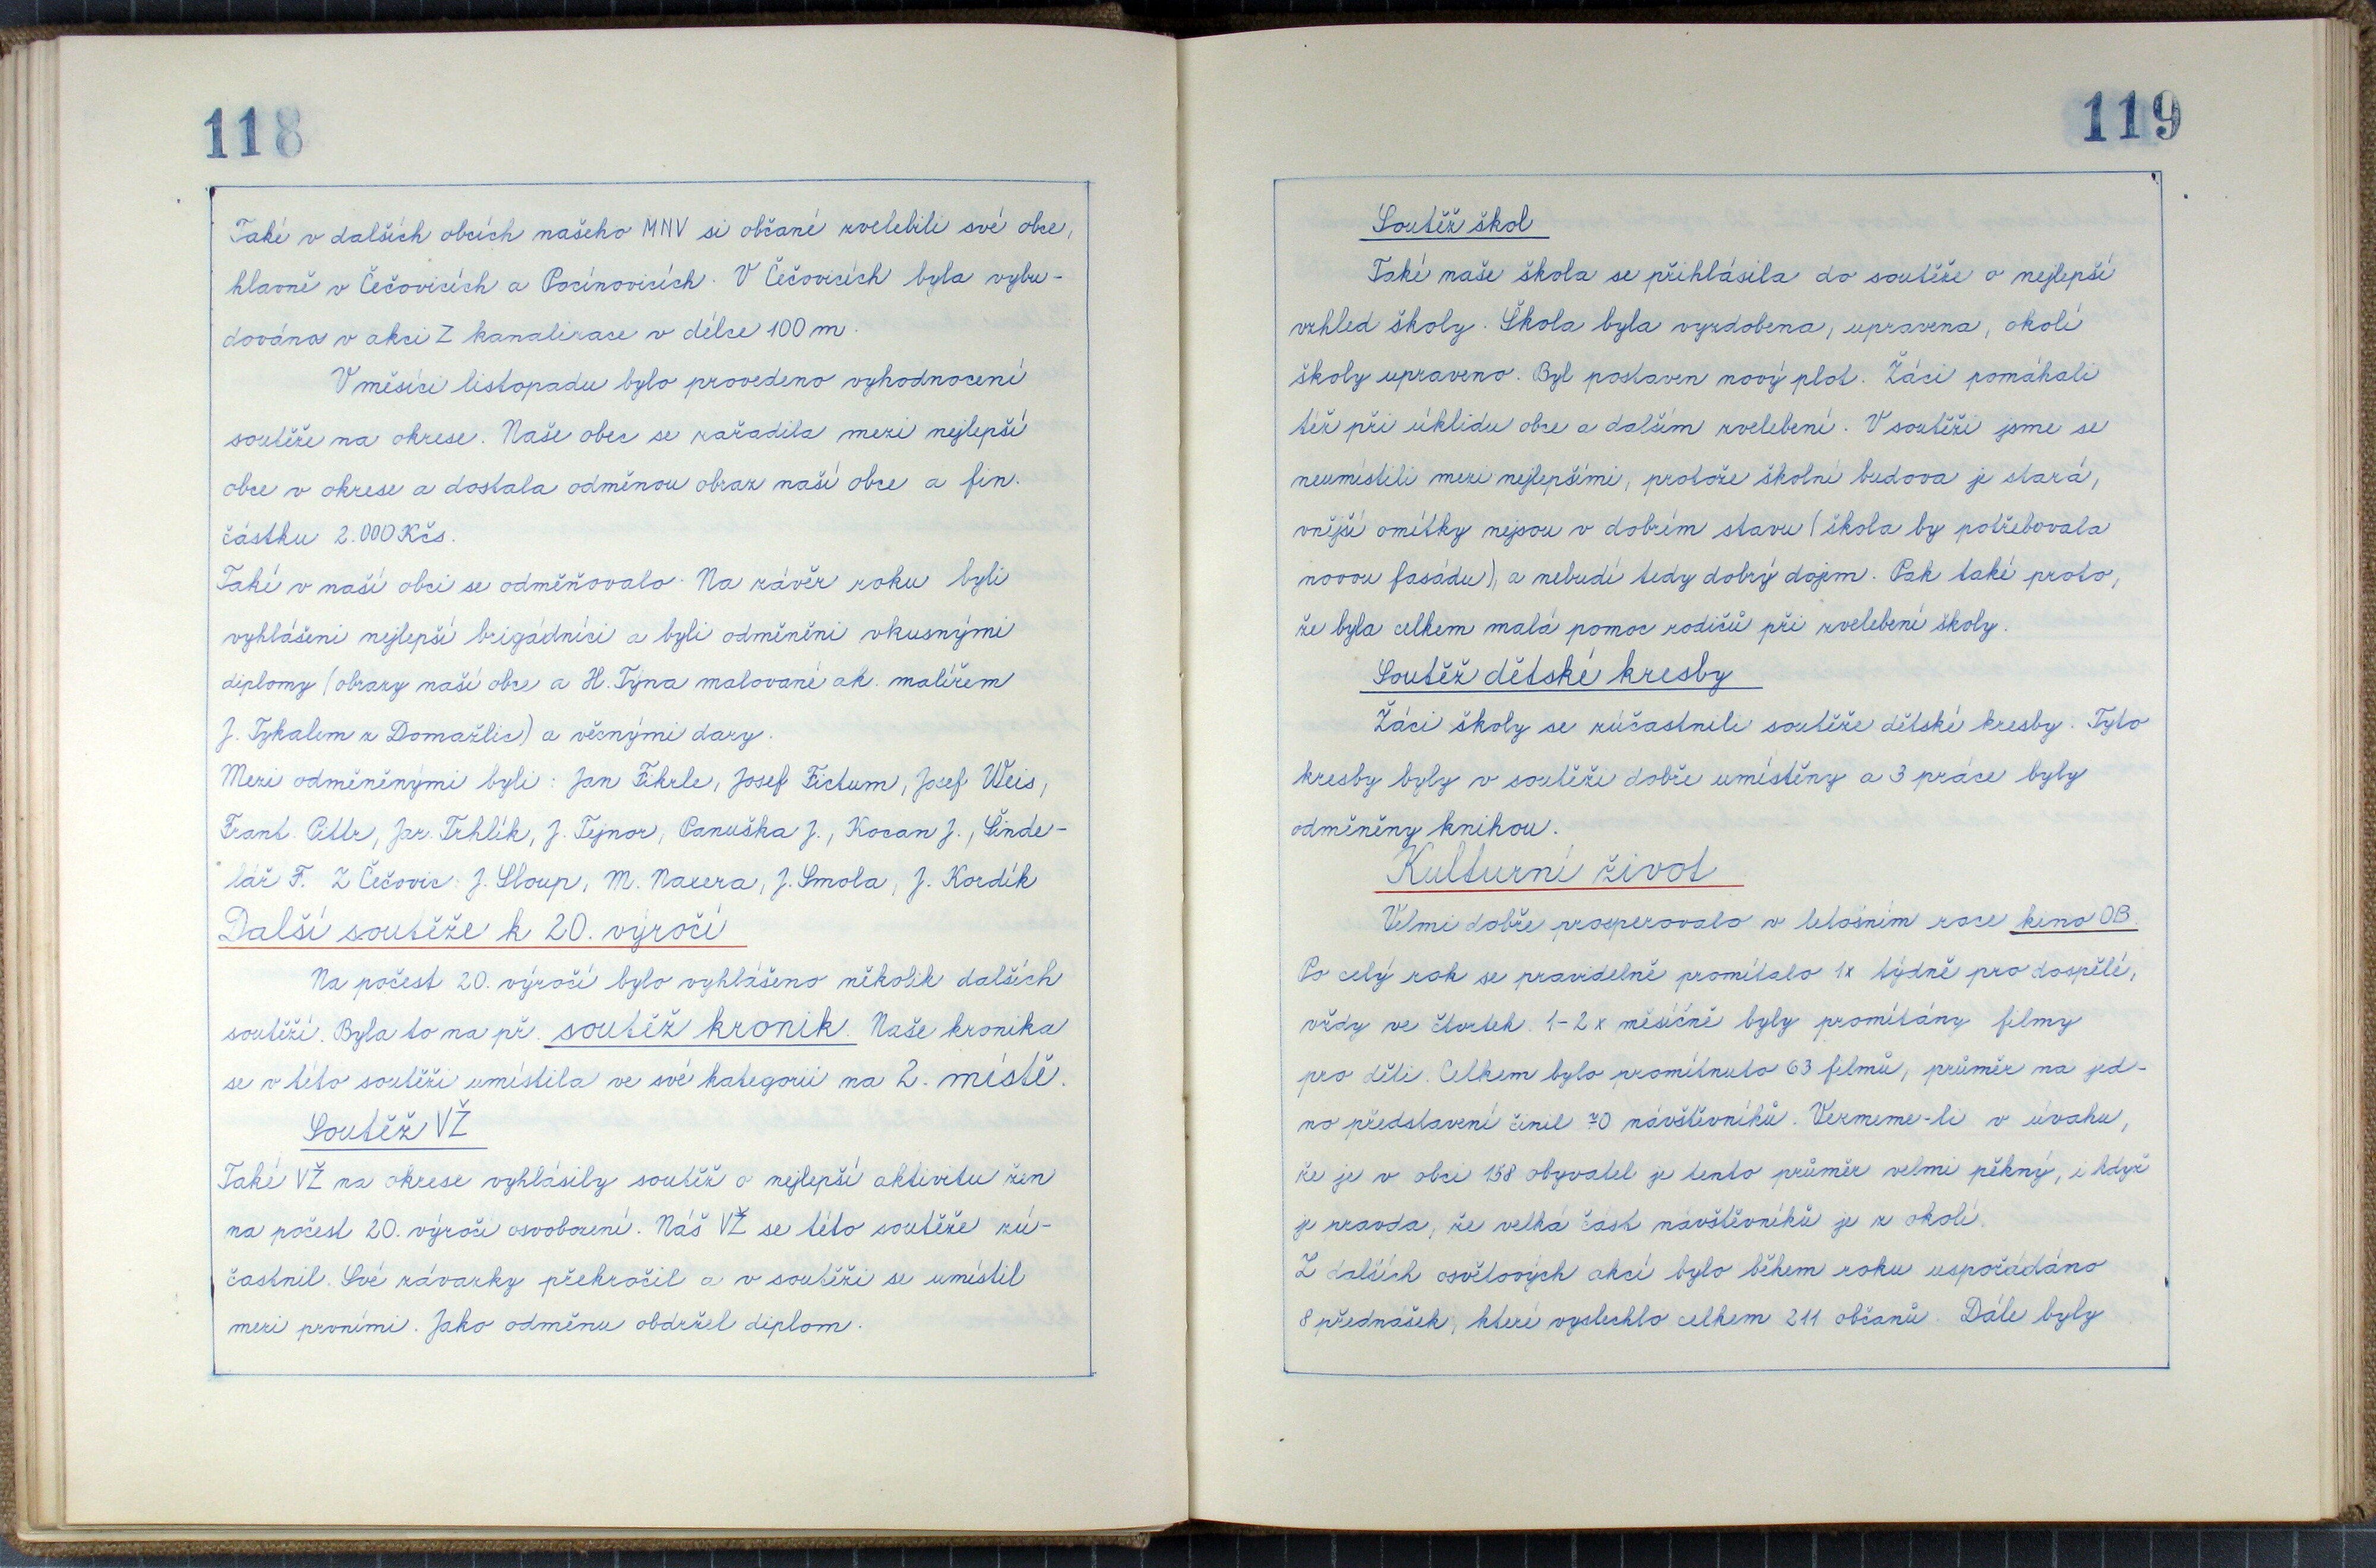 118
Také v dalších obcích našeho MNV si občané zvelebili své obce,
hlavně v Čečovicích a Pocínovicích. V Čečovicích byla vybu-
dována v akci Z kanalizace v délce 100 m.
V měsíci listopadu bylo provedeno vyhodnocení
soutěže na okrese. Naše obec se zařadila mezi nejlepší
obce v okrese a dostala odměnou obraz naší obce a fin.
částku 2.000 Kčs.
Také v naší obci se odměňovalo. Na závěr roku byli
vyhlášeni nejlepší brigádníci a byli odměněni vkusnými
diplomy (obrazy naší obce a H. Týna malované ak. malířem
J. Tykalem z Domažlic) a věcnými dary.
Mezi odměněnými byli: Jan Fikrle, Josef Fictum, Josef Weis,
Frant. Pittr, Jar. Trhlík, J. Tejnor, Panuška J., Kocan J., Šinde-
lář F. Z Čečovic: J. Sloup, M. Naxera, J. Smola, J. Kordík
Další soutěže k 20. výročí
Na počest 20. výročí bylo vyhlášeno několik dalších
soutěží. Byla to na př. soutěž kronik. Naše kronika
se v této soutěži umístila ve své kategorii na 2. místě.
Soutěž VŽ
Také VŽ na okrese vyhlásily soutěž o nejlepší aktivitu žen
na počest 20. výročí osvobození. Náš VŽ se této soutěže zú-
častnil. Své závazky překročil a v soutěži se umístil
mezi prvními. Jako odměnu obdržel diplom.
119
Soutěž škol
Také naše škola se přihlásila do soutěže o nejlepší
vzhled školy. Škola byla vyzdobena, upravena, okolí
školy upraveno. Byl postaven nový plot. Žáci pomáhali
též při úklidu obce a dalším zvelebení. V soutěži jsme se
neumístili mezi nejlepšími, protože školní budova je stará,
vnější omítky nejsou v dobrém stavu (škola by potřebovala
novou fasádu), a nebudí tedy dobrý dojem. Pak také proto,
že byla celkem malá pomoc rodičů při zvelebení školy.
Soutěž dětské kresby
Žáci školy se zúčastnili soutěže dětské kresby. Tyto
kresby byly v soutěži dobře umístěny a 3 práce byly
odměněny knihou.
Kulturní život
Velmi dobře prosperovalo v letošním roce kino OB.
Po celý rok se pravidelně promítalo 1x týdně pro dospělé,
vždy ve čtvrtek. 1-2 x měsíčně byly promítány filmy
pro děti. Celkem bylo promítnuto 63 filmů, průměr na jed-
no představení činil 70 návštěvníků. Vezmeme-li v úvahu,
že je v obci 158 obyvatel je tento průměr velmi pěkný, i když
je pravda, že velká část návštěvníků je z okolí.
Z dalších osvětových akcí bylo během roku uspořádáno
8 přednášek, které vyslechlo celkem 211 občanů. Dále byly